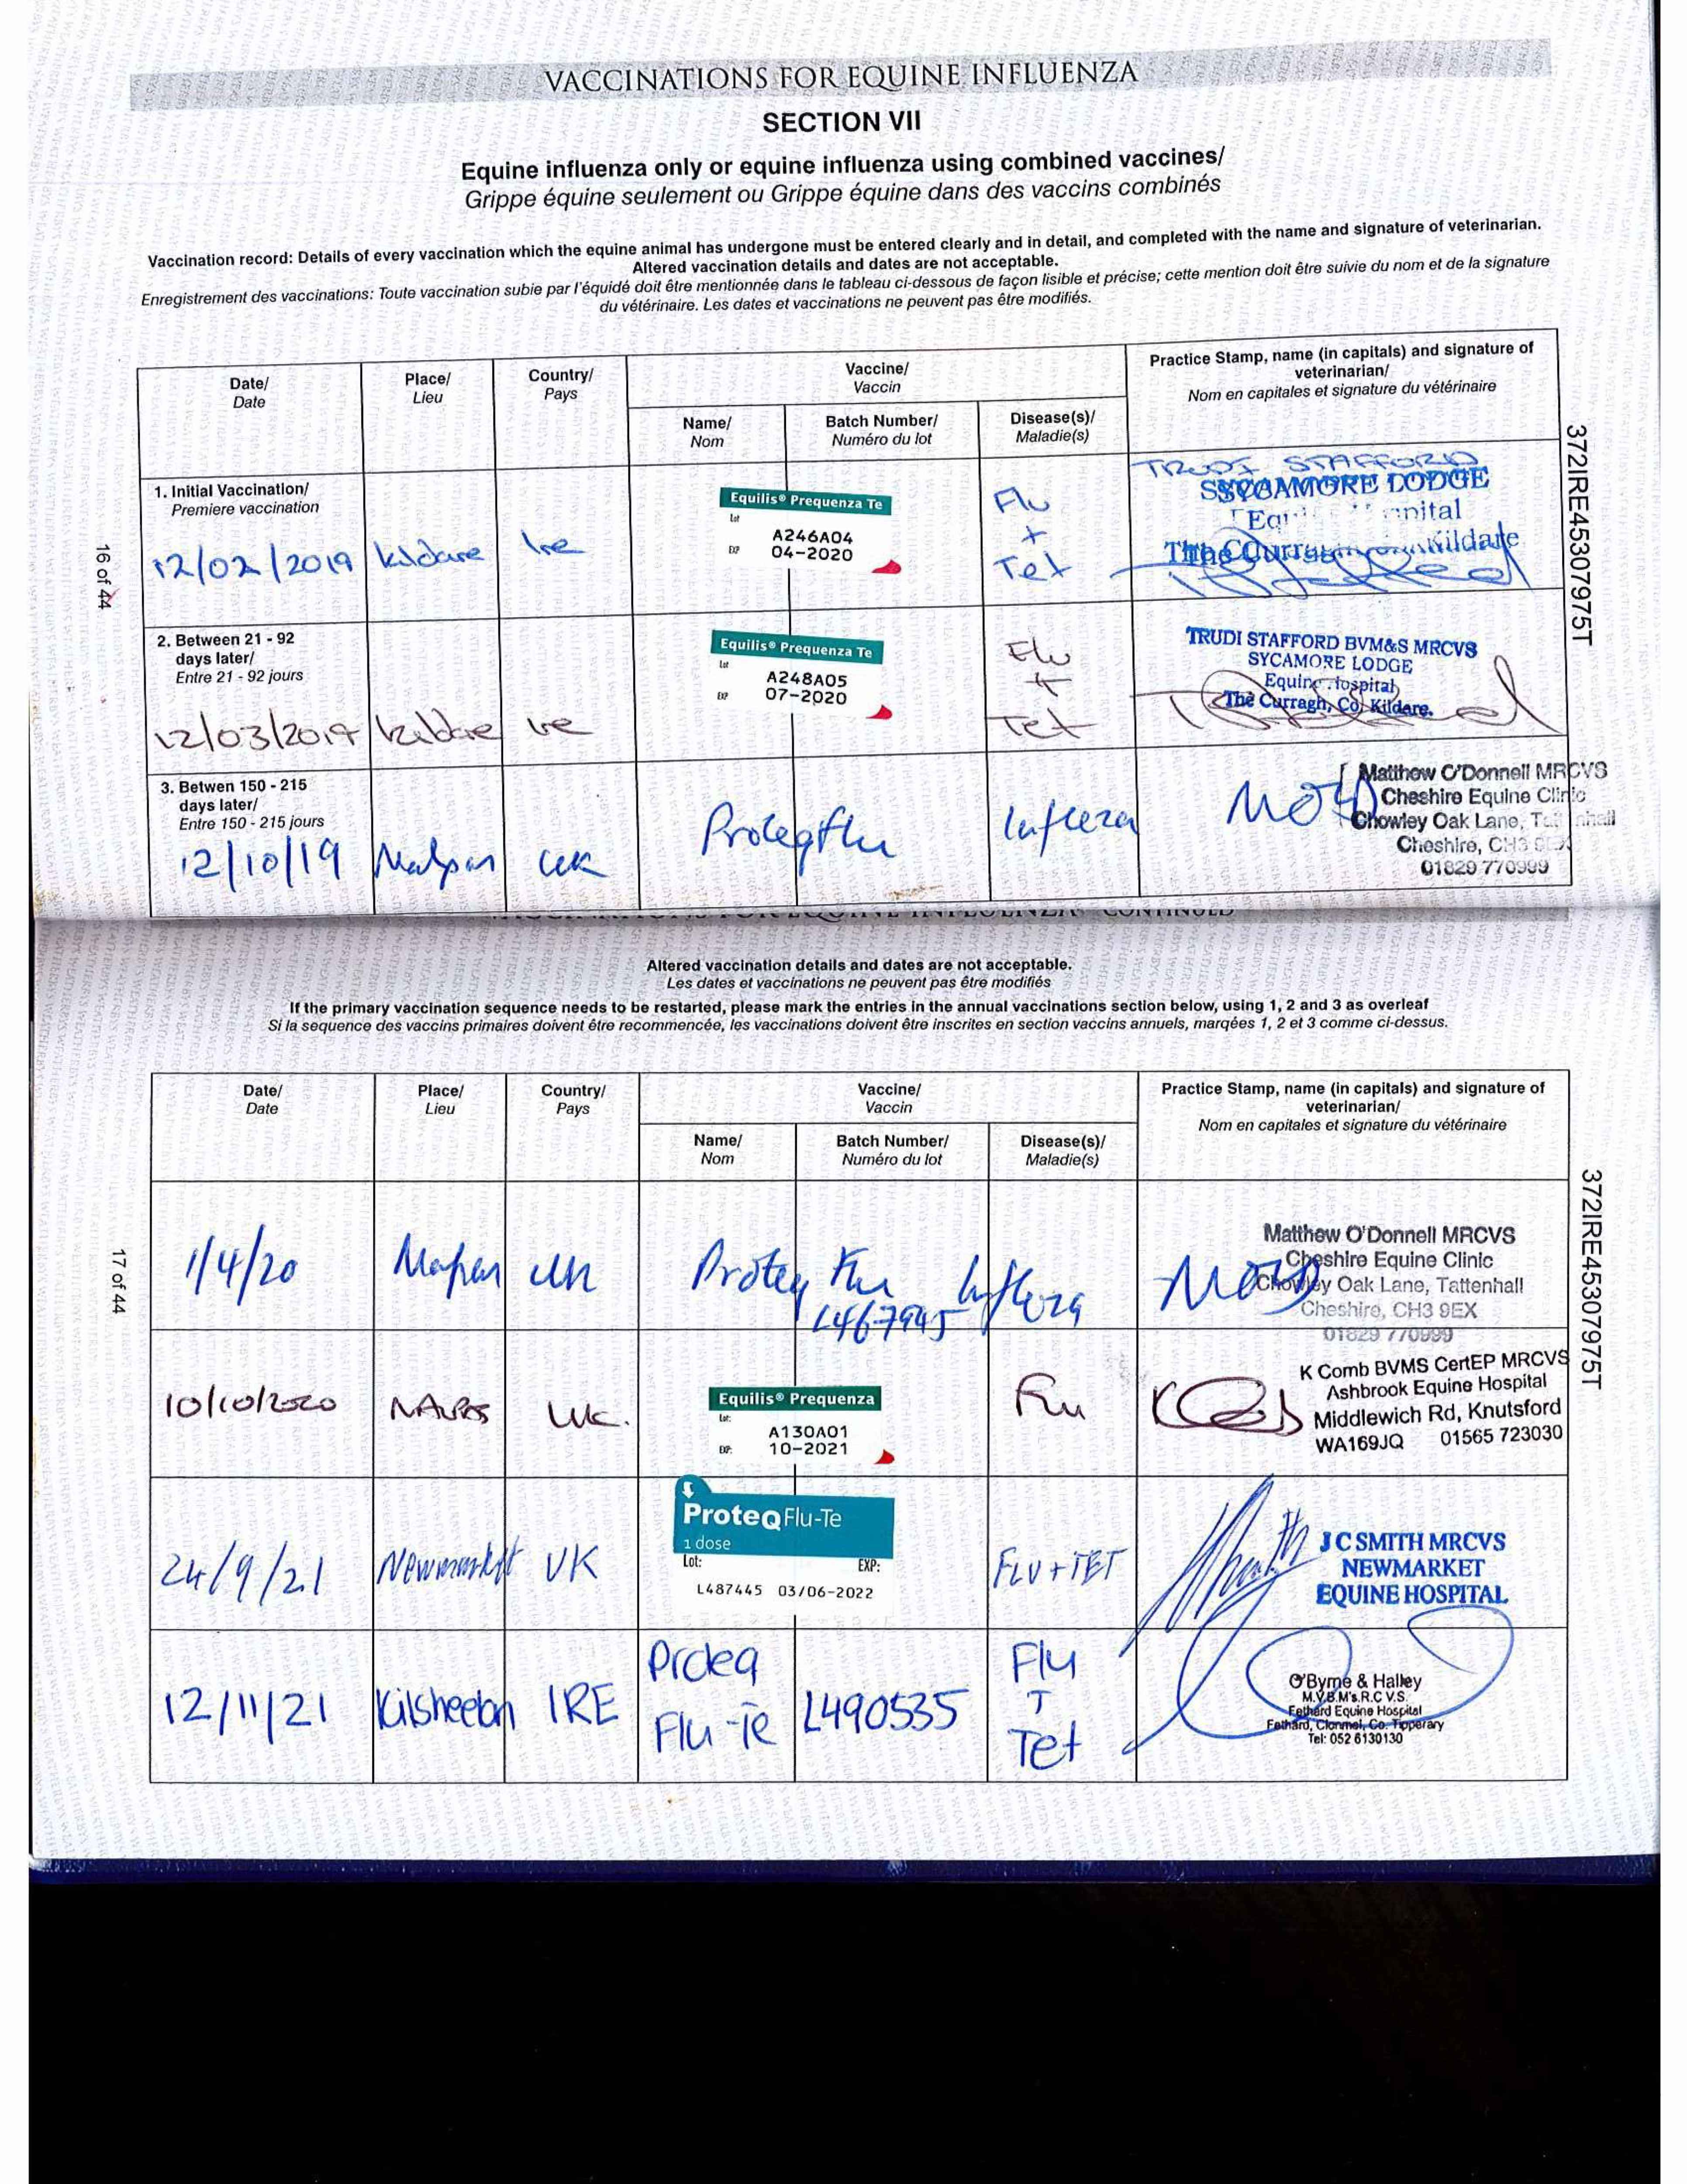 VACCINATIONS FOR EQUINE INFLUENZA
SECTION VII
Equine influenza only or equine influenza using combined vaccines/
Grippe équine seulement ou Grippe équine dans des vaccins combinés
Vaccination record: Details of every vaccination which the equine animal has undergone must be entered clearly and in detail, and completed with the name and signature of veterinarian.
Altered vaccination details and dates are not acceptable.
Enregistrement des vaccinations: Toute vaccination subie par l'équidé doit être mentionnée dans le tableau ci-dessous de façon lisible et précise; cette mention doit être suivie du nom et de la signature
du vétérinaire. Les dates et vaccinations ne peuvent pas être modifiés.
Date/
Date
Place/
Lieu
Country/
Pays
Vaccine/
Vaccin
Name/
Nom
Batch Number/
Numéro du lot
Disease(s)/
Maladie(s)
Practice Stamp, name (in capitals) and signature of
veterinarian/
Nom en capitales et signature du vétérinaire
1. Initial Vaccination/
Premiere vaccination
12/02/2019
Kildare
Ire
Equilis® Prequenza Te
Lot
A246A04
EXP
04-2020
Flu
+
Tet
TRUDI STAFFORD
SYCAMORE LODGE
The Curragh Kildare
2. Between 21 - 92
days later/
Entre 21 - 92 jours
12/03/2019
Kildare
Ire
Equilis® Prequenza Te
Lot
A248A05
EXP
07-2020
Flu
+
Tet
TRUDI STAFFORD BVM&S MRCVS
SYCAMORE LODGE
Equine Hospital
The Curragh, Co. Kildare.
3. Betwen 150 - 215
days later/
Entre 150 - 215 jours
12/10/19
Malpas
UK
Proteqflu
Matthew O'Donnell MRCVS
Cheshire Equine Clinic
Chowley Oak Lane,
Cheshire, CH3
01829 770999
16 of 44
372IRE45307975T
Altered vaccination details and dates are not acceptable.
Les dates et vaccinations ne peuvent pas être modifiés
If the primary vaccination sequence needs to be restarted, please mark the entries in the annual vaccinations section below, using 1, 2 and 3 as overleaf
Si la sequence des vaccins primaires doivent être recommencée, les vaccinations doivent être inscrites en section vaccins annuels, marqées 1, 2 et 3 comme ci-dessus.
Date/
Date
Place/
Lieu
Country/
Pays
Vaccine/
Vaccin
Name/
Nom
Batch Number/
Numéro du lot
Disease(s)/
Maladie(s)
Practice Stamp, name (in capitals) and signature of
veterinarian/
Nom en capitales et signature du vétérinaire
1/4/20
Malpas
UK
Proteq Flu
L467945
Matthew O'Donnell MRCVS
Cheshire Equine Clinic
Chowley Oak Lane, Tattenhall
Cheshire, CH3 9EX
01829 770999
10/10/2020
UK.
Equilis® Prequenza
Lot:
A130A01
EXP:
10-2021
Flu
K Comb BVMS CertEP MRCVS
Ashbrook Equine Hospital
Middlewich Rd, Knutsford
WA169JQ 01565 723030
24/9/21
Newmarket
UK
ProteqFlu-Te
1 dose
Lot: EXP:
L487445 03/06-2022
FLU+TET
J C SMITH MRCVS
NEWMARKET
EQUINE HOSPITAL
12/11/21
Kilsheelan
IRE
Proteq
Flu-Te
L490535
Flu
T
Tet
O'Byrne & Halley
M.V.B.M's.R.C V.S.
Fethard Equine Hospital
Fethard, Clonmel, Co. Tipperary
Tel: 052 6130130
17 of 44
372IRE45307975T